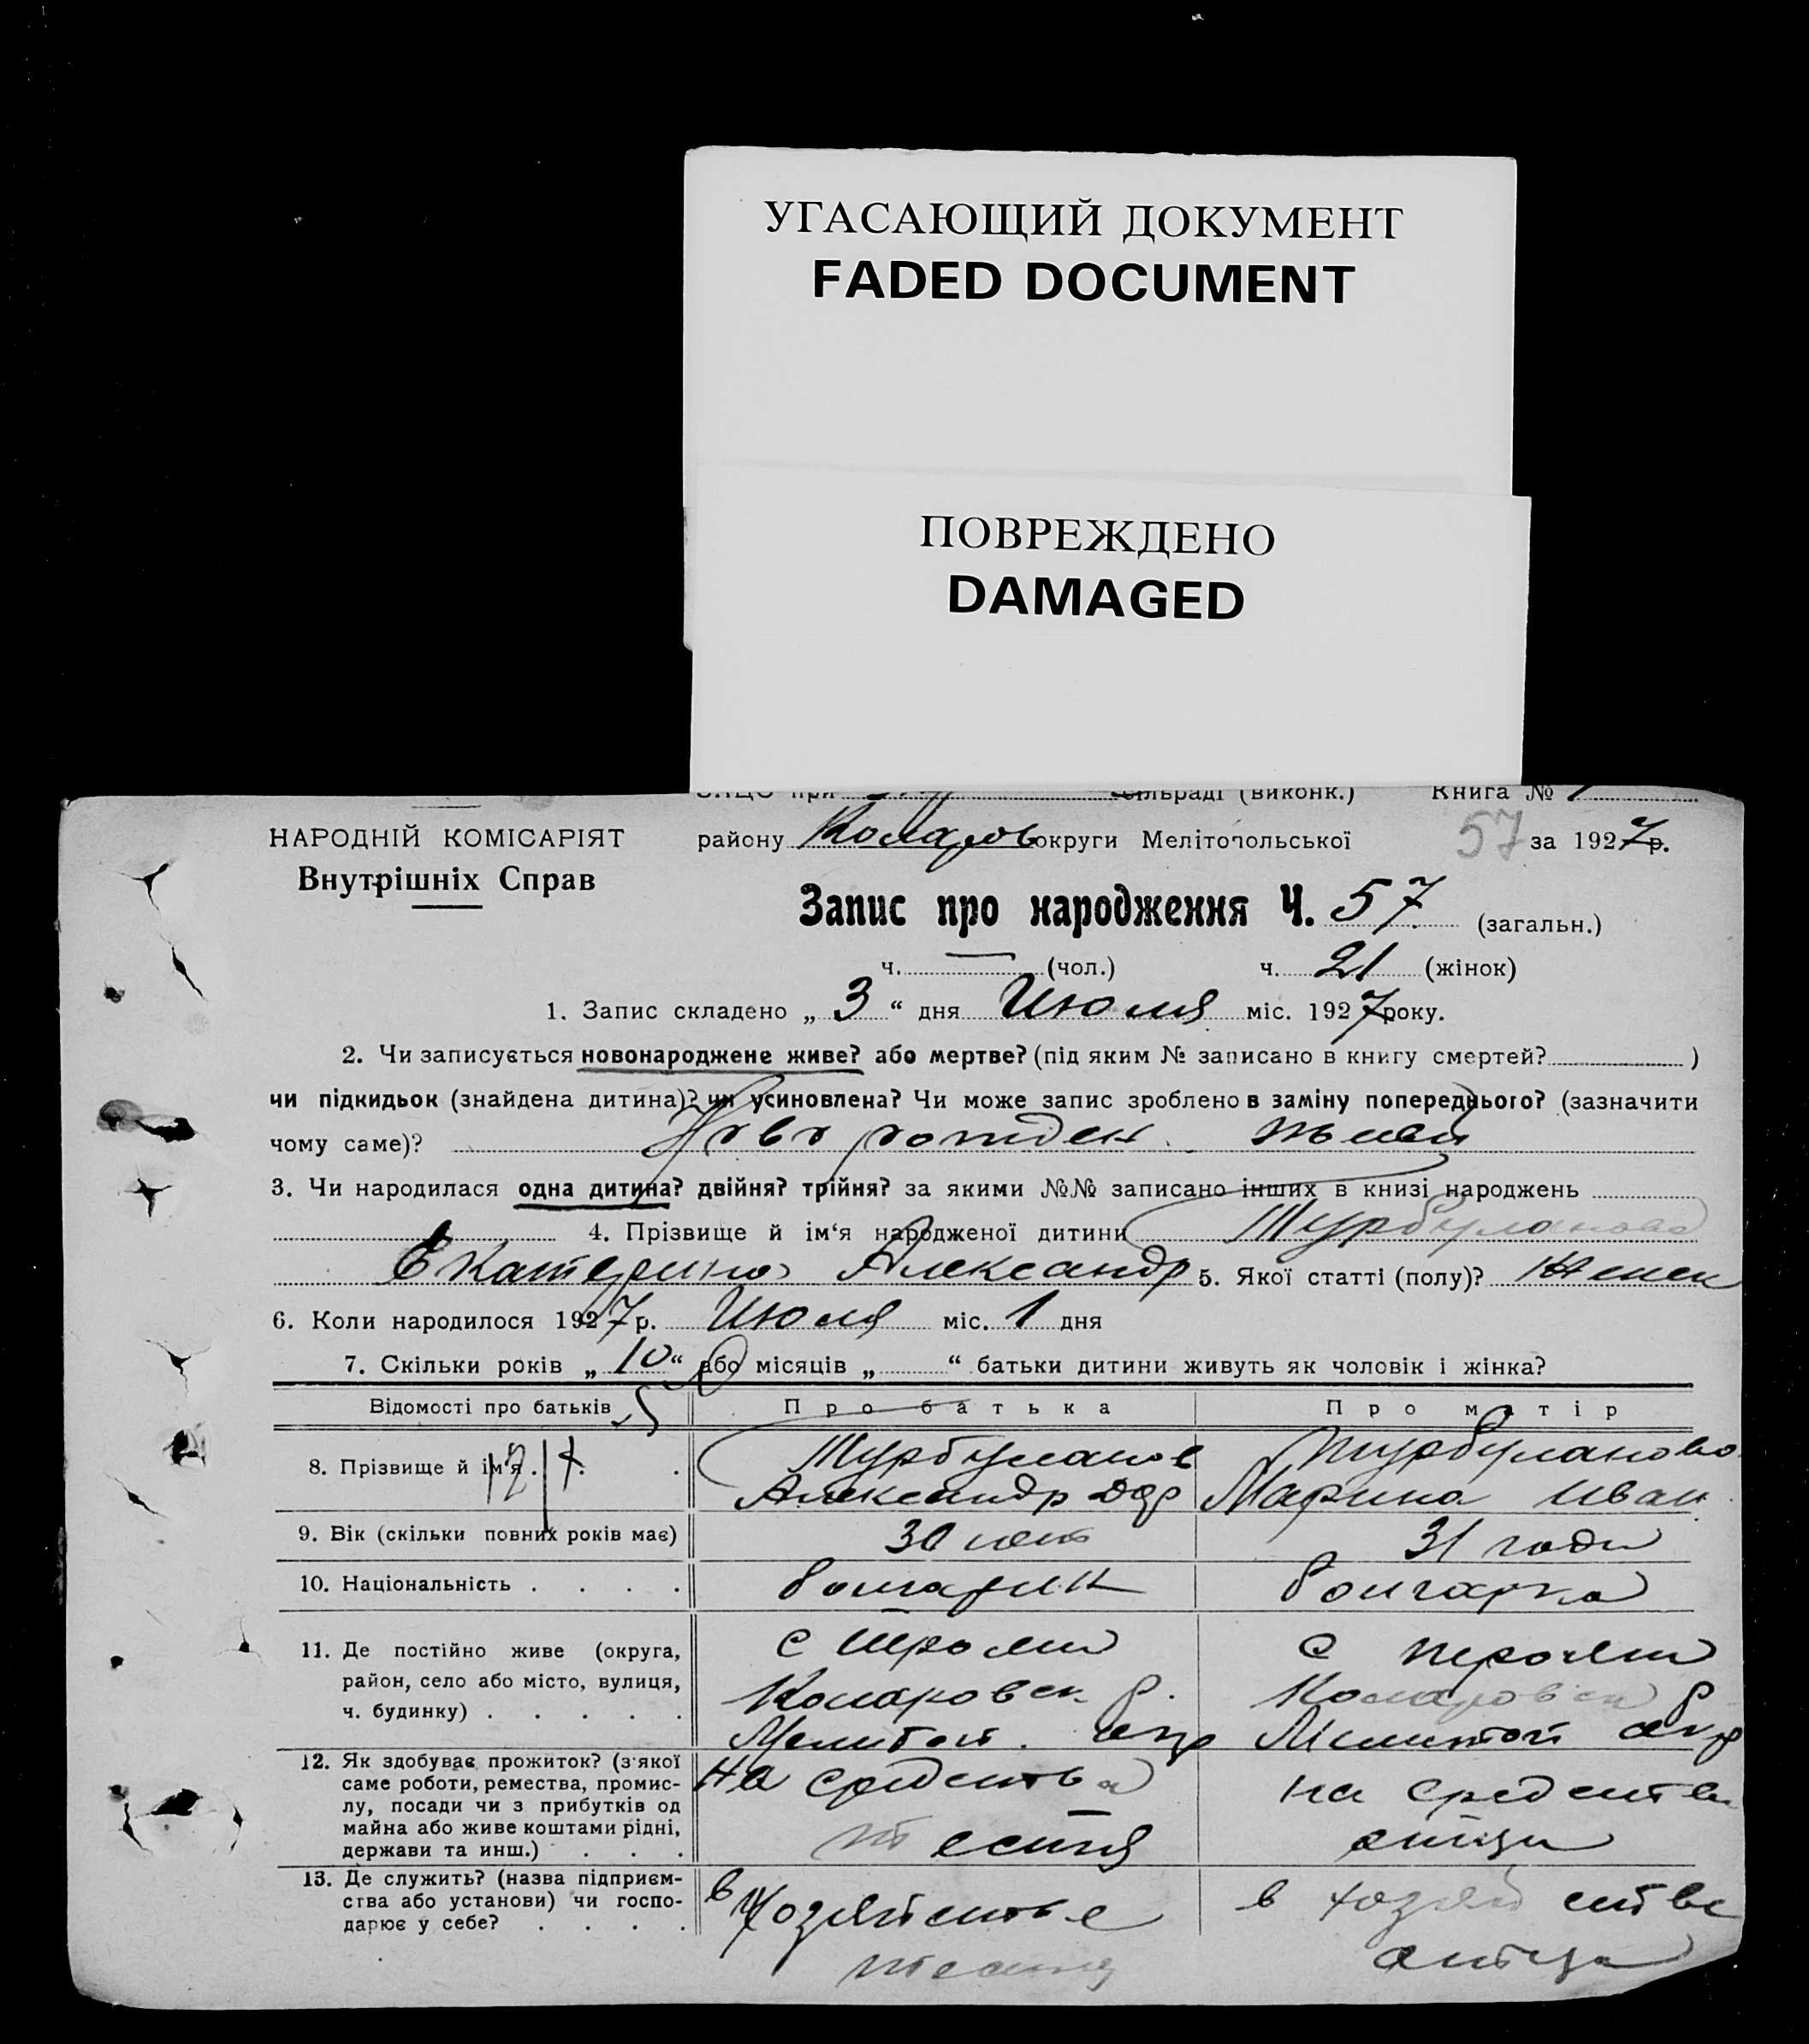 УГАСАЮЩИЙ ДОКУМЕНТ
FADED DOCUMENT
ПОВРЕЖДЕНО
DAMAGED
при сільраді (виконк.) Книга № 1
НАРОДНІЙ КОМІСАРІЯТ
Внутрішніх Справ
району Коларов округи Мелітопольської 57 за 1927р.
Запис про народження Ч. 57 (загальн.)
ч. — (чол.) ч. 21 (жінок)
1. Запис складено „ 3 “ дня Июля міс. 1927 року.
2. Чи записується новонароджене живе? або мертве? (під яким № записано в книгу смертей? )
чи підкидьок (знайдена дитина)? чи усиновлена? Чи може запис зроблено в заміну попереднього? (зазначити
чому саме)? Новорожден. живы
3. Чи народилася одна дитина? двійня? трійня? за якими №№ записано інших в книзі народжень
4. Прізвище й ім‘я народженої дитини Турбуланова
Екатерина Александр 5. Якої статті (полу)? Женск
6. Коли народилося 1927 р. Июля міс. 1 дня
7. Скільки років „ 10 “ або місяців „ “ батьки дитини живуть як чоловік і жінка?
Відомості про батьків Про батька Про матір
8. Прізвище й ім‘я . . . Турбуланов Турбуланова
Александр Марина Иван
9. Вік (скільки повних років має) 30 лет 31 года
10. Національність . . . . болгарин болгарка
11. Де постійно живе (округа, район, село або місто, вулиця, ч. будинку) . . . . .
с Трояны с Трояны
Коларовск р. Коларовск р
Мелитоп. окр Мелитоп окр
12. Як здобуває прожиток? (з‘якої саме роботи, ремества, промислу, посади чи з прибутків од майна або живе коштами рідні, держави та инш.) . . .
на средства на средства
тестя отца
13. Де служить? (назва підприємства або установи) чи господарює у себе? . . . .
в хозяйстве в хозяйстве
тестя отца